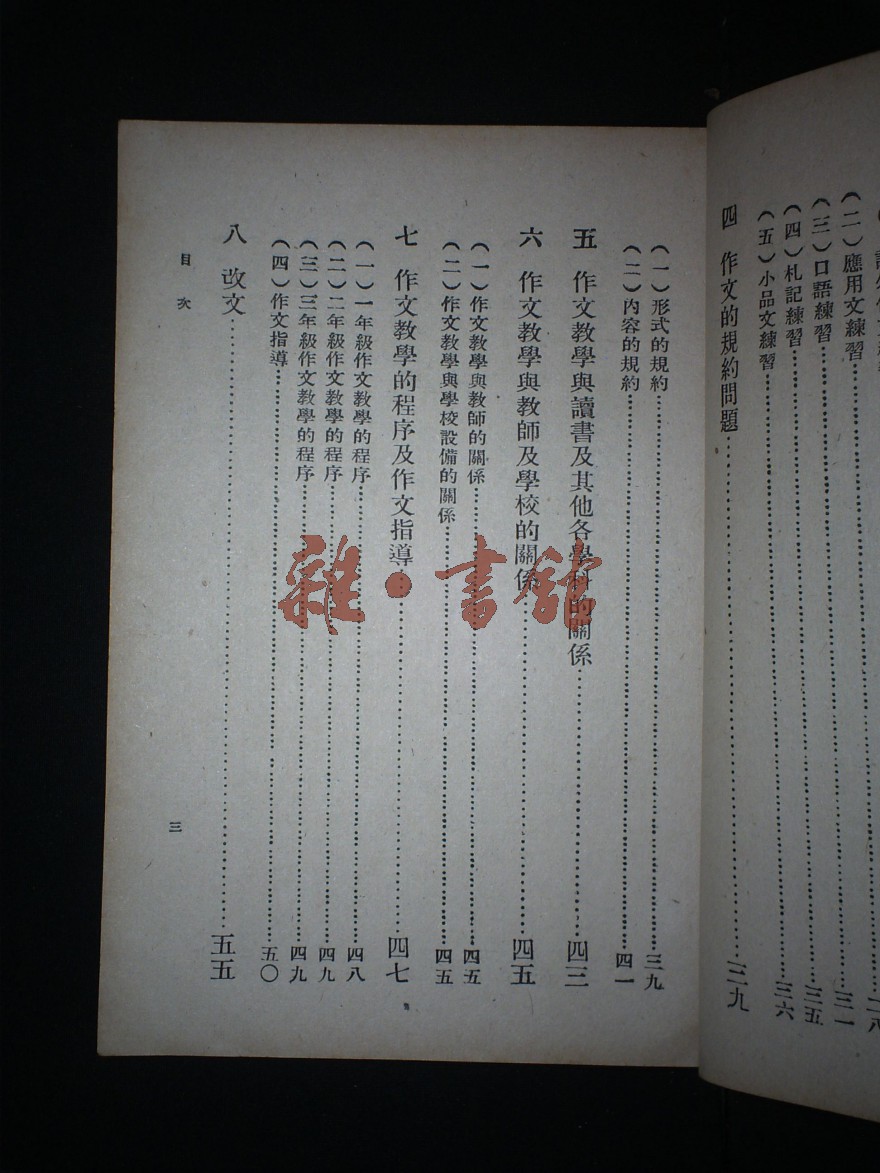 (二)應用文練習……二八
(三)口語練習……三一
(四)札記練習……三五
(五)小品文練習……三六
四 作文的規約問題……三九
(一)形式的規約……三九
(二)內容的規約……四一
五 作文教學與讀書及其他各學科的關係……四三
六 作文教學與教師及學校的關係……四五
(一)作文教學與教師的關係……四五
(二)作文教學與學校設備的關係……四五
七 作文教學的程序及作文指導……四七
(一)一年級作文教學的程序……四八
(二)二年級作文教學的程序……四九
(三)三年級作文教學的程序……四九
(四)作文指導……五〇
八 改文……五五
目次
三
雜·書館